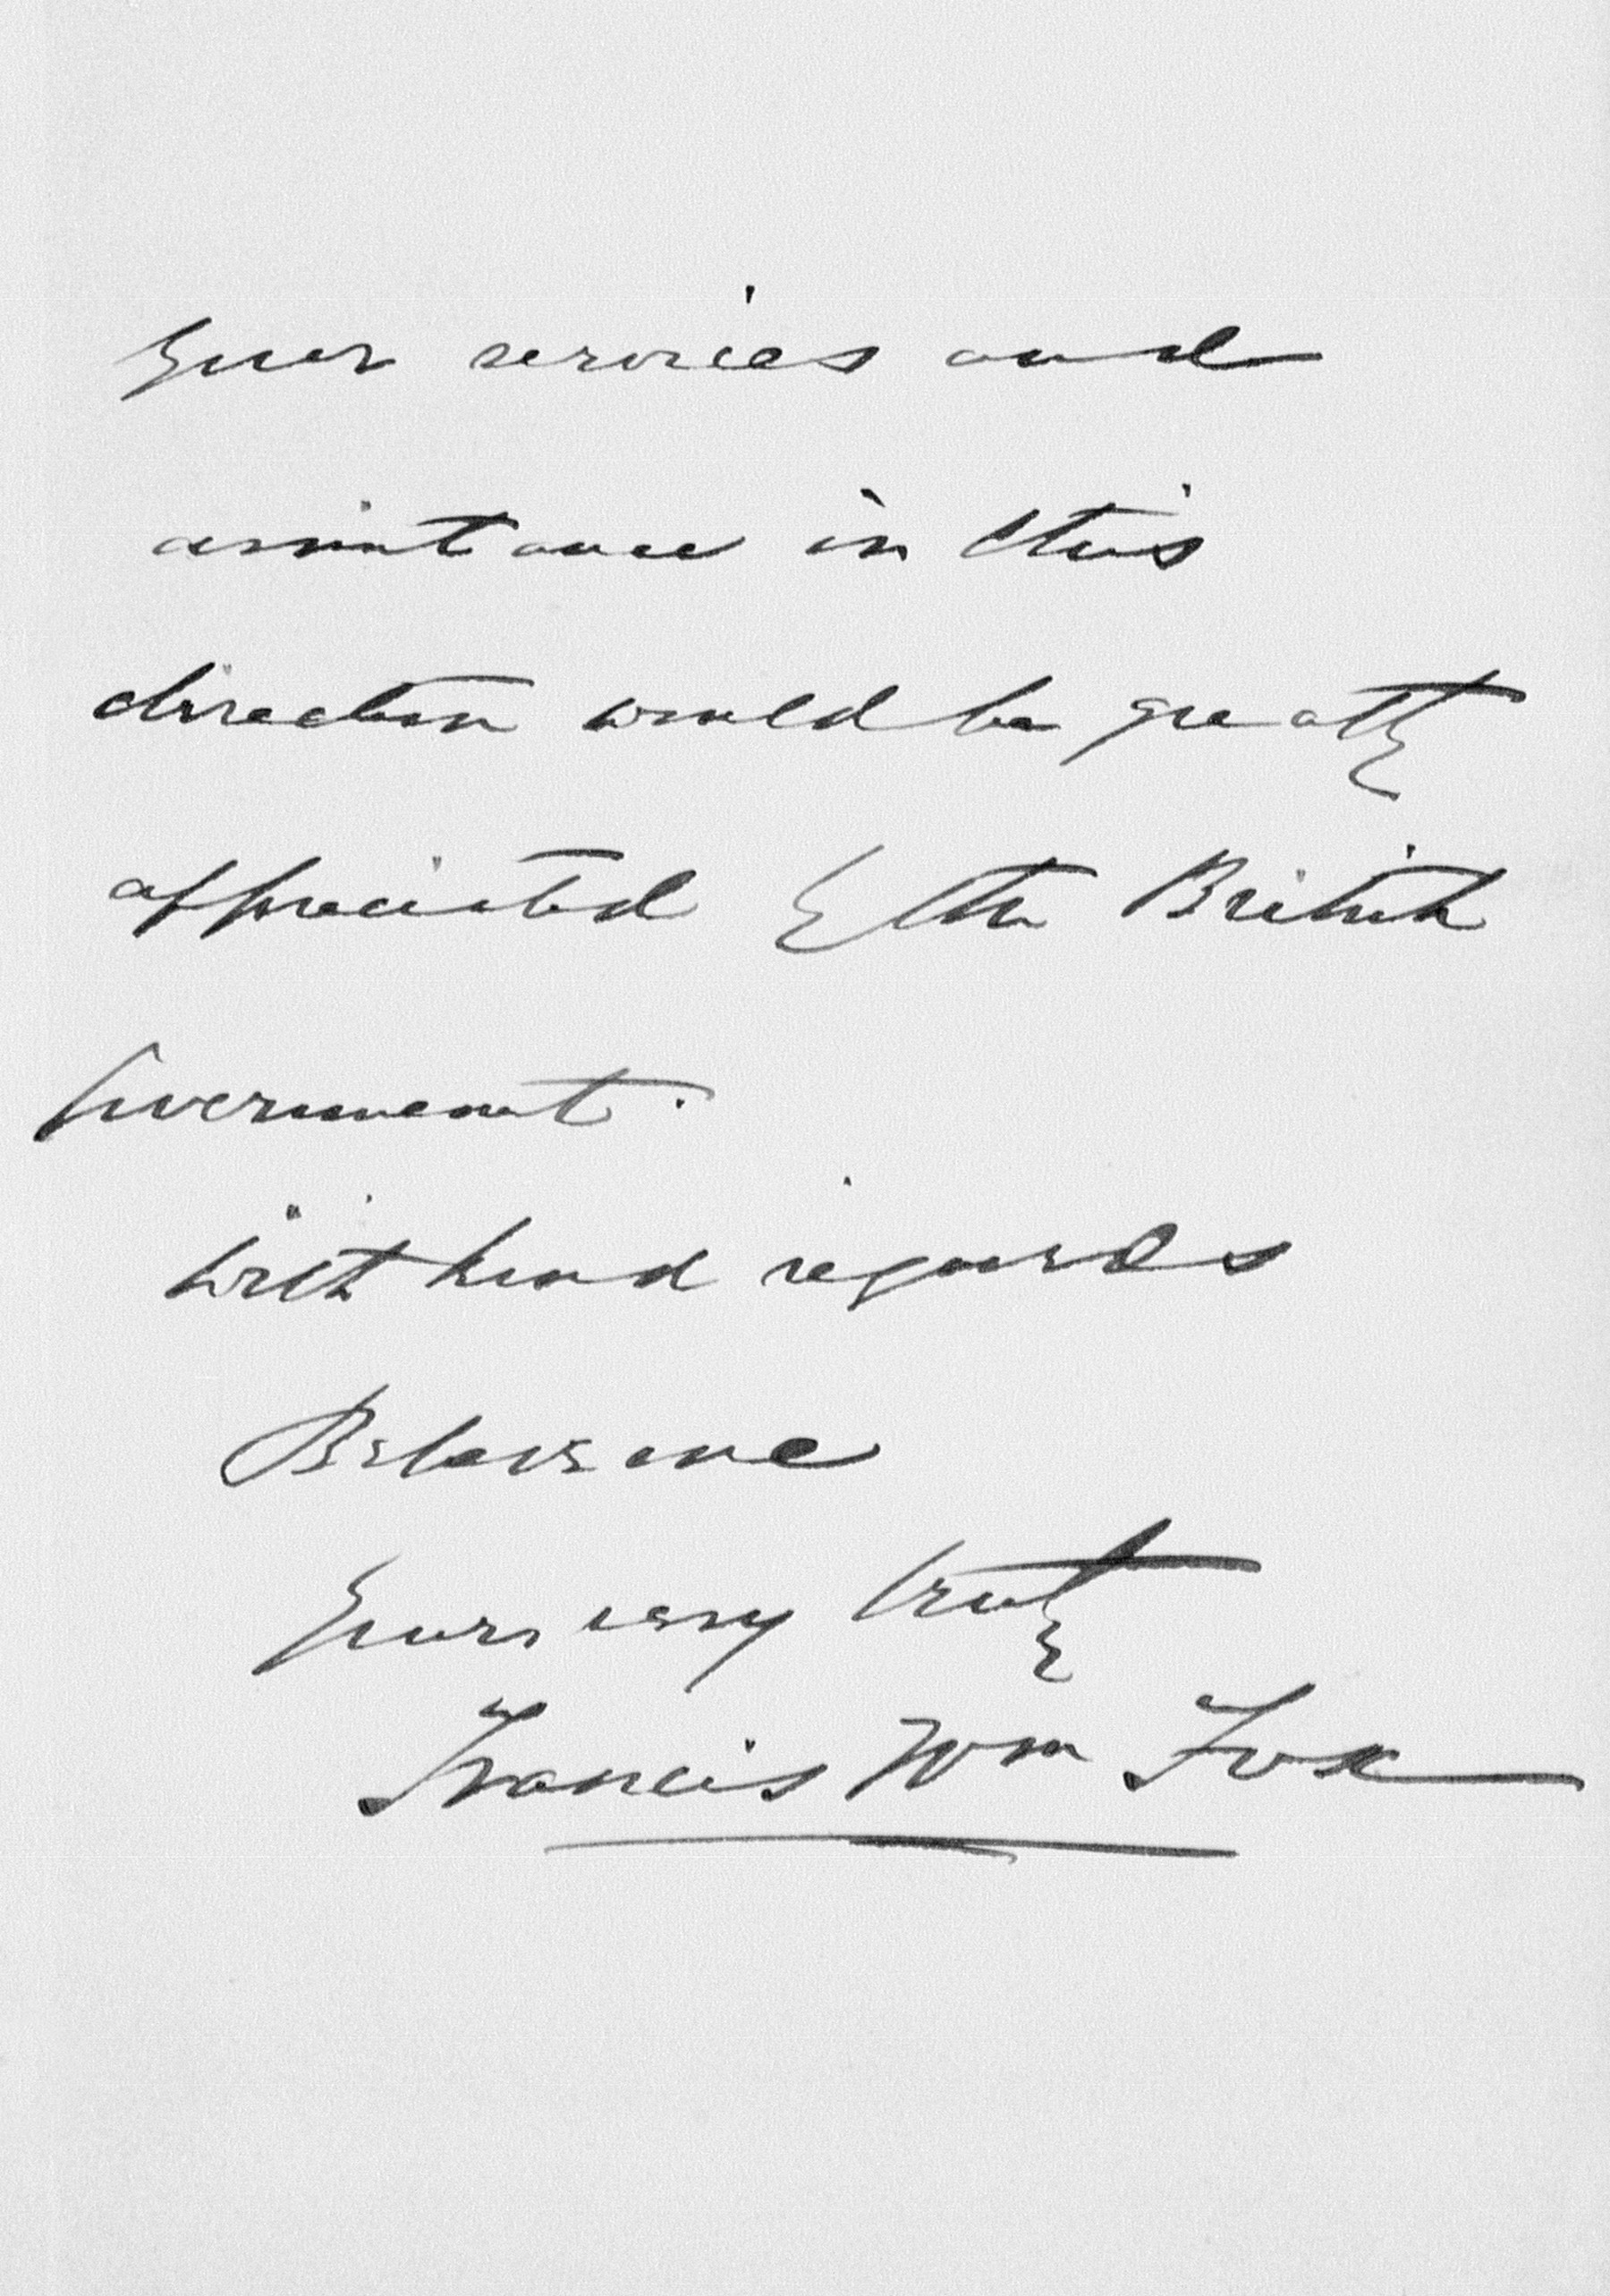 Your services and
assistance in this
direction would be greatly
appreciated by the British
Government.
With kind regards
Believe me
Yours very truly
Francis Wm Fox